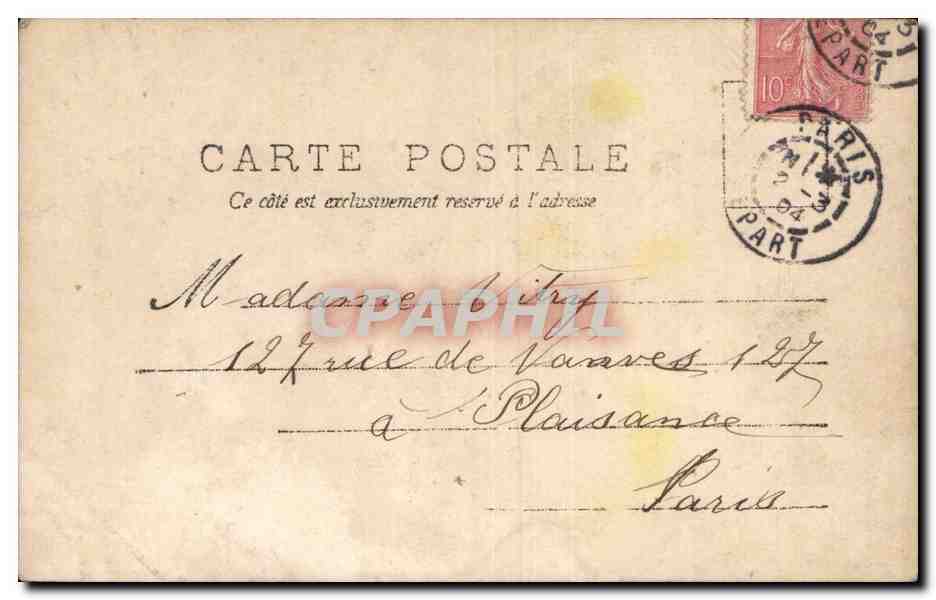 CARTE POSTALE
Ce côté est exclusivement reservé à l'adresse
10c
04 3
PART
PARIS
04 3
PART
Madame Vitry
127 rue de Vanves 127
à Plaisance
Paris
CPAPHIL